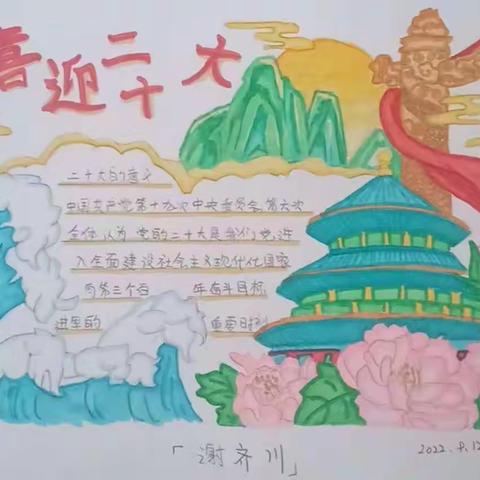 喜迎二十大
二十大的意义
中国共产党第十九次中央委员会第六次
全体认为党的二十大是我们党进
入全面建设社会主义现代化国家
向第三个百 年奋斗目标
进军的 重要日
「谢齐川」
2022.9.12